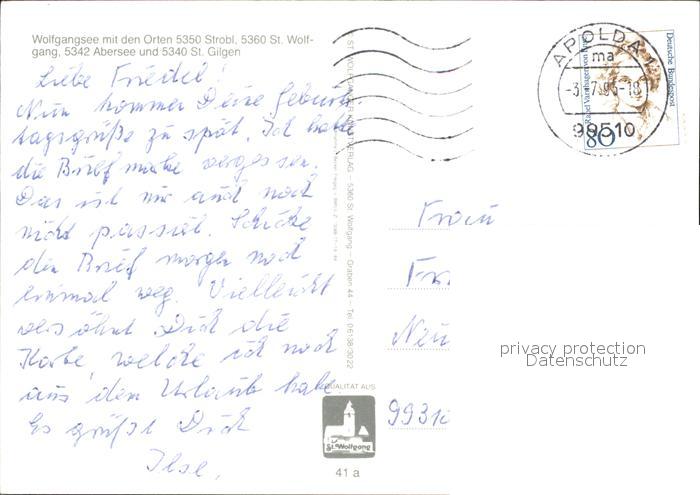 Wolfgangsee mit den Orten 5350 Strobl, 5360 St. Wolf-
gang, 5342 Abersee und 5340 St. Gilgen
Liebe Friedel!
Nun kommen Deine Geburts-
tagsgrüße zu spät. Ich habe
die Briefmarke vergessen.
Das ist mir auch noch
nicht passiert. Schicke
den Brief morgen noch
einmal weg. Vielleicht
versöhnt Dich die
Karte, welche ich noch
aus dem Urlaub habe.
Es grüßt Dich
Ilse,
5360 St. Wolfgang
QUALITÄT AUS
St. Wolfgang
41 a
APOLDA 1
ma
99510
Deutsche Bundespost
Rahel Varnhagen von Ense
80
Frau
Neu
privacy protection
Datenschutz